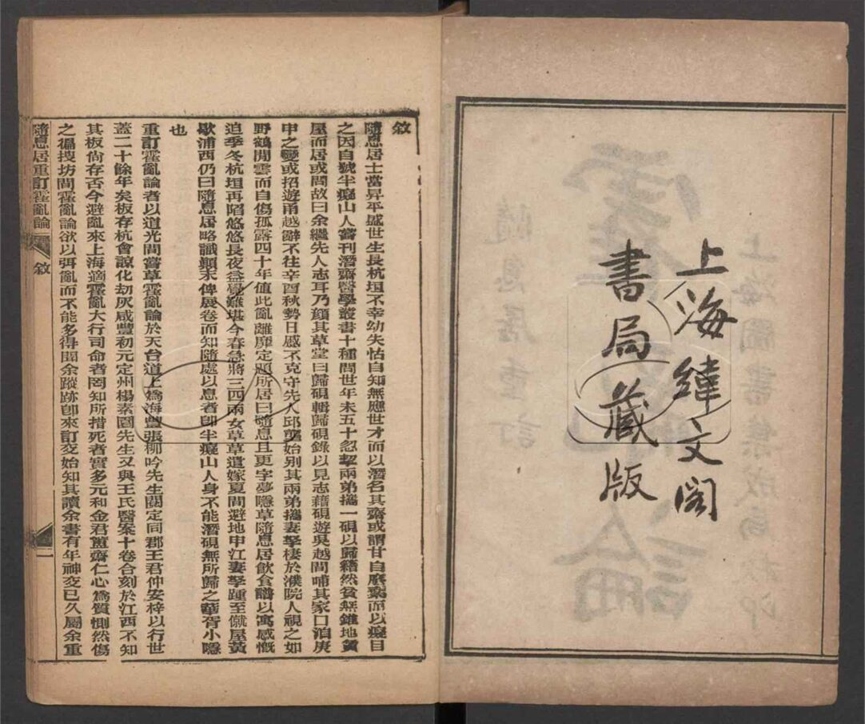 上海緯文閣
書局藏版
敘
隨息居士當昇平盛世生長杭垣不幸幼失怙自知無應世才而以潛名其齋或謂甘自廢棄而以癡目
之因自號半癡山人嘗刊潛齋醫學叢書十種問世年未五十忽挈兩弟攜一硯以歸籍然貧無錐地賃
屋而居或問故曰余繼先人志耳乃顏其草堂曰歸硯輯歸硯錄以見志藉硯遊吳越間哺其家口洎庚
申之變或招遊甬越辭不往辛酉秋勢日戚不克守先人邱壟始別其兩弟攜妻孥棲於濮院人視之如
野鶴閒雲而自傷孤露四十年值此亂離靡定題所居曰隨息且更字夢隱草隨息居飲食譜以寓感慨
迨季冬杭垣再陷悠悠長夜益覺難堪今春急將三四兩女草草遣嫁夏間避地申江妻孥踵至僦屋黃
歇浦西仍曰隨息居略識顛末俾展卷而知隨處以息者卽半癡山人身不能潛硯無所歸之華胥小隱
也
重訂霍亂論者以道光間嘗草霍亂論於天台道上爲海豐張柳吟先生閱定同郡王君仲安梓以行世
蓋二十餘年矣板存杭會諒化劫灰咸豐初元定州楊素園先生又與王氏醫案十卷合刻於江西不知
其板尚存否今避亂來上海適霍亂大行司命者罔知所措死者實多元和金君簠齋仁心爲質惻然傷
之徧搜坊間霍亂論欲以弭亂而不能多得聞余蹤跡卽來訂交始知其讀余書有年神交已久屬余重
隨息居重訂霍亂論 敘 一